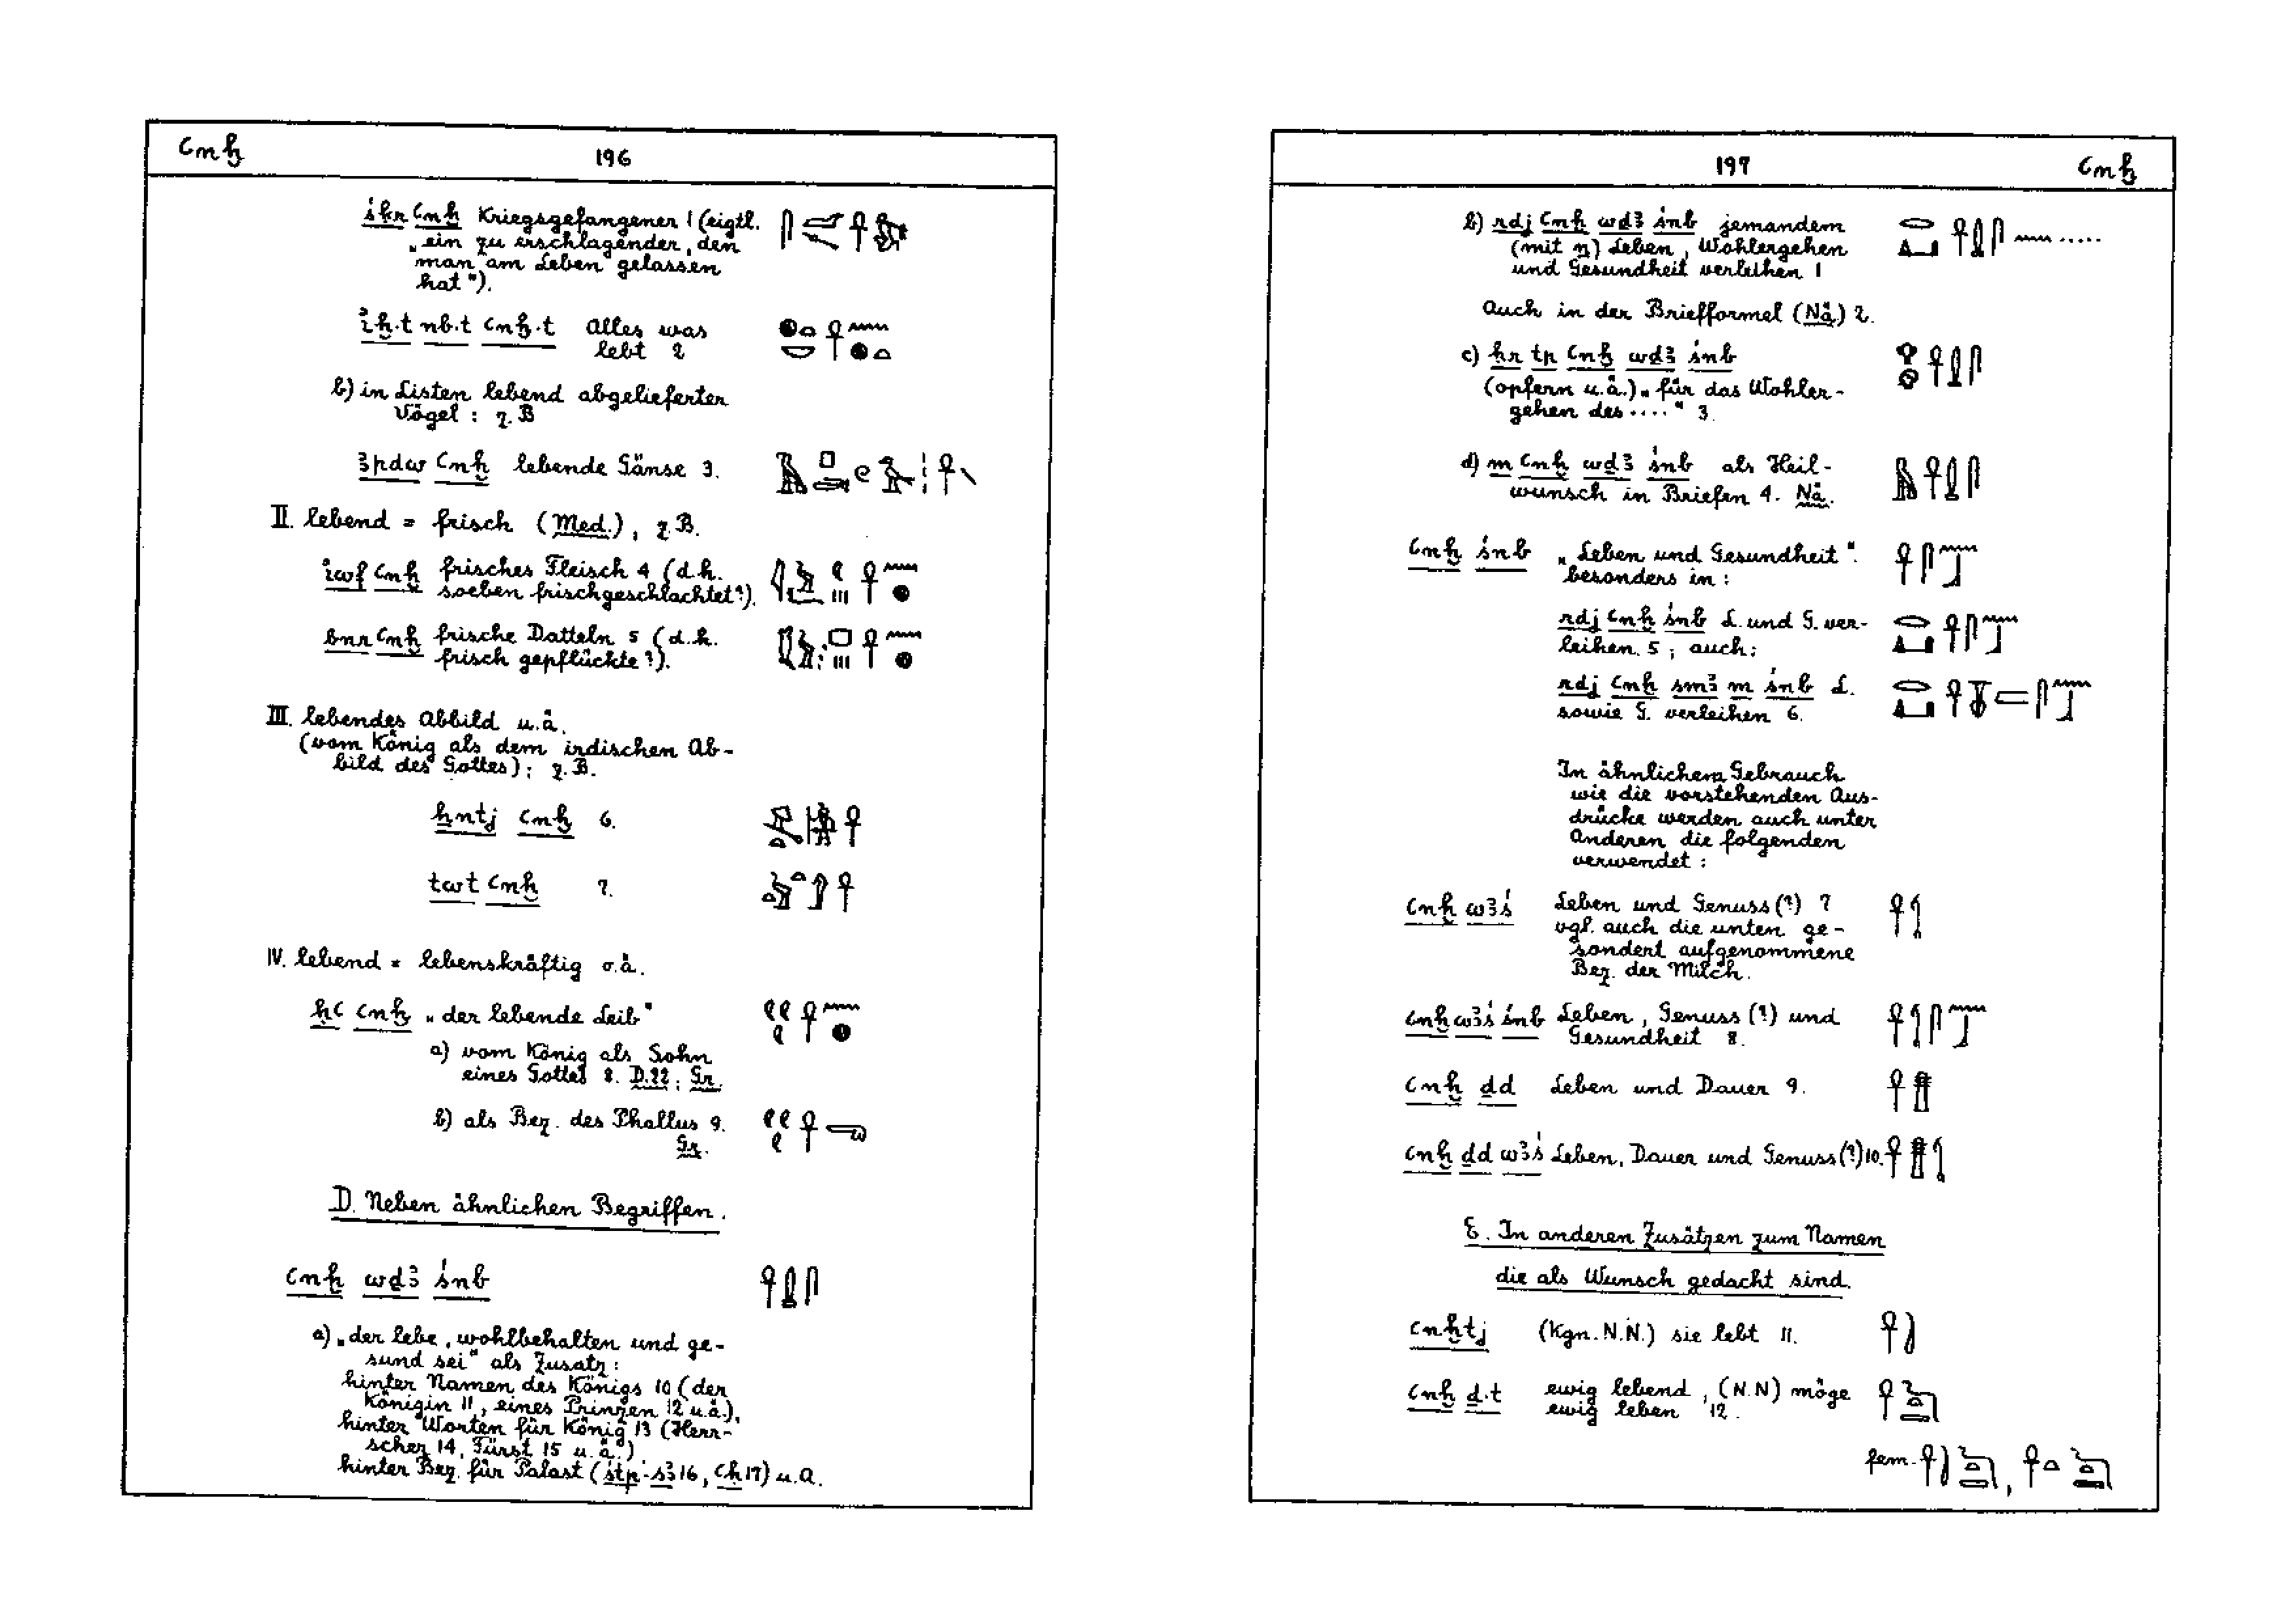 ꜥnḫ
196
śḳr ꜥnḫ Kriegsgefangener 1 (eigtl.
„ein zu erschlagender, den
man am Leben gelassen
hat").
iḫ.t nb.t ꜥnḫ.t Alles was
lebt 2
b) in Listen lebend abgelieferter
Vögel: z.B
ꜣpdw ꜥnḫ lebende Gänse 3.
II. lebend = frisch (Med.), z.B.
iwf ꜥnḫ frisches Fleisch 4 (d.h.
soeben frischgeschlachtet?).
bnr ꜥnḫ frische Datteln 5 (d.h.
frisch gepflückte?).
III. lebendes Abbild u.ä.
(vom König als dem irdischen Ab-
bild des Gottes); z.B.
ḫntj ꜥnḫ 6.
twt ꜥnḫ 7.
IV. lebend = lebenskräftig o.ä.
ḥꜥ ꜥnḫ „der lebende Leib"
a) vom König als Sohn
eines Gottes 8. D.22; Gr.
b) als Bez. des Phallus 9.
Gr.
D. Neben ähnlichen Begriffen.
ꜥnḫ wḏꜣ śnb
a) „der lebe, wohlbehalten und ge-
sund sei" als Zusatz:
hinter Namen des Königs 10 (der
Königin 11, eines Prinzen 12 u.ä.),
hinter Worten für König 13 (Herr-
scher 14, Fürst 15 u.ä.)
hinter Bez. für Palast (śtp-sꜣ 16, ꜥḥ 17) u.A.
197
ꜥnḫ
b) rdj ꜥnḫ wḏꜣ śnb jemandem
(mit n) Leben, Wohlergehen
und Gesundheit verleihen 1
Auch in der Briefformel (Nä) 2.
c) ḥr tp ꜥnḫ wḏꜣ śnb
(opfern u.ä.) „für das Wohler-
gehen des ...." 3.
d) m ꜥnḫ wḏꜣ śnb als Heil-
wunsch in Briefen 4. Nä.
ꜥnḫ śnb „Leben und Gesundheit".
besonders in:
rdj ꜥnḫ śnb L. und G. ver-
leihen 5; auch:
rdj ꜥnḫ smꜣ m śnb L.
sowie G. verleihen 6.
In ähnlichem Gebrauch
wie die vorstehenden Aus-
drücke werden auch unter
Anderen die folgenden
verwendet:
ꜥnḫ wꜣś Leben und Genuss (?) 7
vgl. auch die unten ge-
sondert aufgenommene
Bez. der Milch.
ꜥnḫ wꜣś śnb Leben, Genuss (?) und
Gesundheit 8.
ꜥnḫ ḏd Leben und Dauer 9.
ꜥnḫ ḏd wꜣś Leben, Dauer und Genuss (?) 10.
E. In anderen Zusätzen zum Namen
die als Wunsch gedacht sind.
ꜥnḫtj (Kgn. N.N.) sie lebt 11.
ꜥnḫ ḏ.t ewig lebend, (N.N) möge
ewig leben 12.
fem.